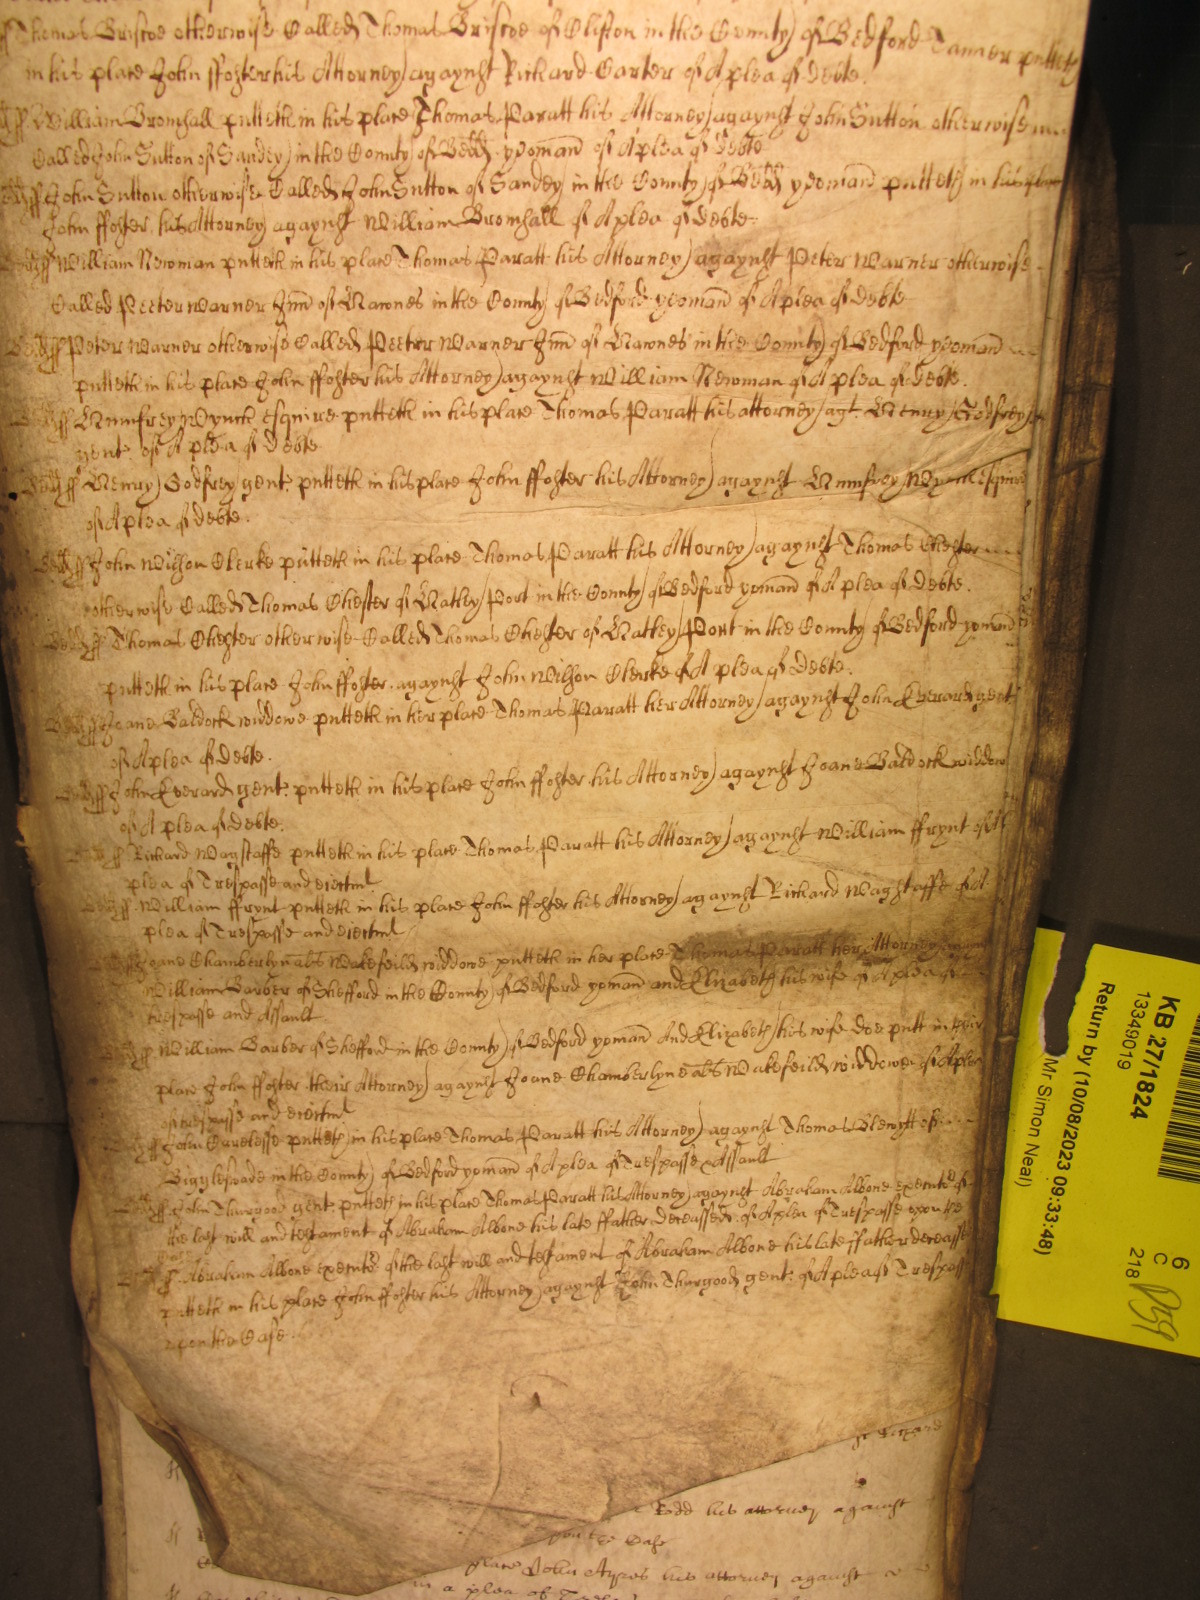 Thomas Briscoe otherwise Called Thomas Briscoe of Clifton in the County of Bedford Tanner putteth
in his place John ffoster his Attorney agaynst Richard Carter of A plea of debte.
ff William Bromsall putteth in his place Thomas Paratt his Attorney agaynst John Sutton otherwise
Called John Sutton of Sandey in the County of Bedd yeoman of A plea of debte
ff John Sutton otherwise Called John Sutton of Sandey in the County of Bedd yeoman putteth in his place
John ffoster his Attorney agaynst William Bromsall of A plea of debte
ff William Newman putteth in his place Thomas Paratt his Attorney agaynst Peter Warner otherwise
Called Peeter Warner Jun of Hawnes in the County of Bedford yeoman of A plea of debte
ff Peter Warner otherwise Called Peeter Warner Jun of Hawnes in the County of Bedford yeoman
putteth in his place John ffoster his Attorney agaynst William Newman of A plea of debte.
ff Humfrey Wynch esquire putteth in his place Thomas Paratt his attorney agt Henry Godfrey
gent: of A plea of debte
ff Henry Godfrey gent: putteth in his place John ffoster his Attorney agaynst Humfrey Wynch Esquire
of A plea of debte.
ff John Wilson Clerke putteth in his place Thomas Paratt his Attorney agaynst Thomas Chester
otherwise Called Thomas Chester of Hatley Port in the County of Bedford yoman of A plea of debte.
ff Thomas Chester otherwise Called Thomas Chester of Hatley Port in the County of Bedford yoman
putteth in his place John ffoster agaynst John Wilson Clerke of A plea of debte.
ff Joane Baldock widdowe putteth in her place Thomas Paratt her Attorney agaynst John Everard gent:
of A plea of debte.
ff John Everard gent: putteth in his place John ffoster his Attorney agaynst Joane Baldock widdow
of A plea of debte.
ff Richard Wagstaffe putteth in his place Thomas Paratt his Attorney agaynst William ffrynt of A
plea of Trespasse and eiectmt
ff William ffrynt putteth in his place John ffoster his Attorney agaynst Richard Wagstaffe of A
plea of Trespasse and eiectmt
Joane Chamberlyn als Wakefeild widdowe putteth in her place Thomas Paratt her Attorney agayn
William Barber of Shefford in the County of Bedford yoman and Elizabeth his wife of A plea of
trespasse and Assault
ff William Barber of Shefford in the County of Bedford yoman And Elizabeth his wife doe putt in their
place John ffoster their Attorney agaynst Joane Chamberlyne als Wakefeild widdowe of A plea
of trespasse and eiectmt
ff John putteth in his place Thomas Paratt his Attorney agaynst Thomas of
Biggleswade in the County of Bedford yoman of A plea of Trespasse & Assault
ff John Thurgood gent: putteth in his place Thomas Paratt his Attorney agaynst Abraham Albone executor of
the last will and testament of Abraham Albone his late ffather deceassed of A plea of Trespasse upon the
Case
ff Abraham Albone executor of the last will and testament of Abraham Albone his late ffather deceasse
putteth in his place John ffoster his Attorney agaynst John Thurgood gent: of A plea of Trespasse
upon the Case
Todd his attorney against
upon the Case
place John Ayres his attorney against
in a plea of
KB 27/1824
13349019
Return by (10/08/2023 09:33:48)
Mr Simon Neal)
6
C
218